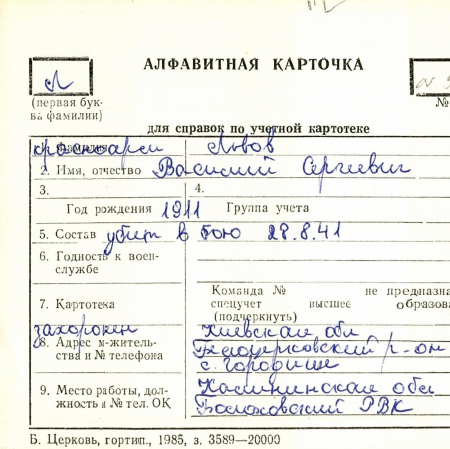 Л
АЛФАВИТНАЯ КАРТОЧКА
(первая бук-
ва фамилии)
№
для справок по учетной картотеке
1. Фамилия Львов
2. Имя, отчество Василий Сергиевич
3. 4.
Год рождения 1911 Группа учета
5. Состав убит в бою 28.8.41
6. Годность к воен-
службе
Команда № не предназна
7. Картотека спецучет высшее образова
(подчеркнуть)
захоронен Киевская обл
8. Адрес м-житель-
ства и № телефона Белоцерковский р-он
с. Городище
9. Место работы, дол- Калининская обл
жность и № тел. ОК РВК
Б. Церковь, гортип., 1985, з. 3589—20000